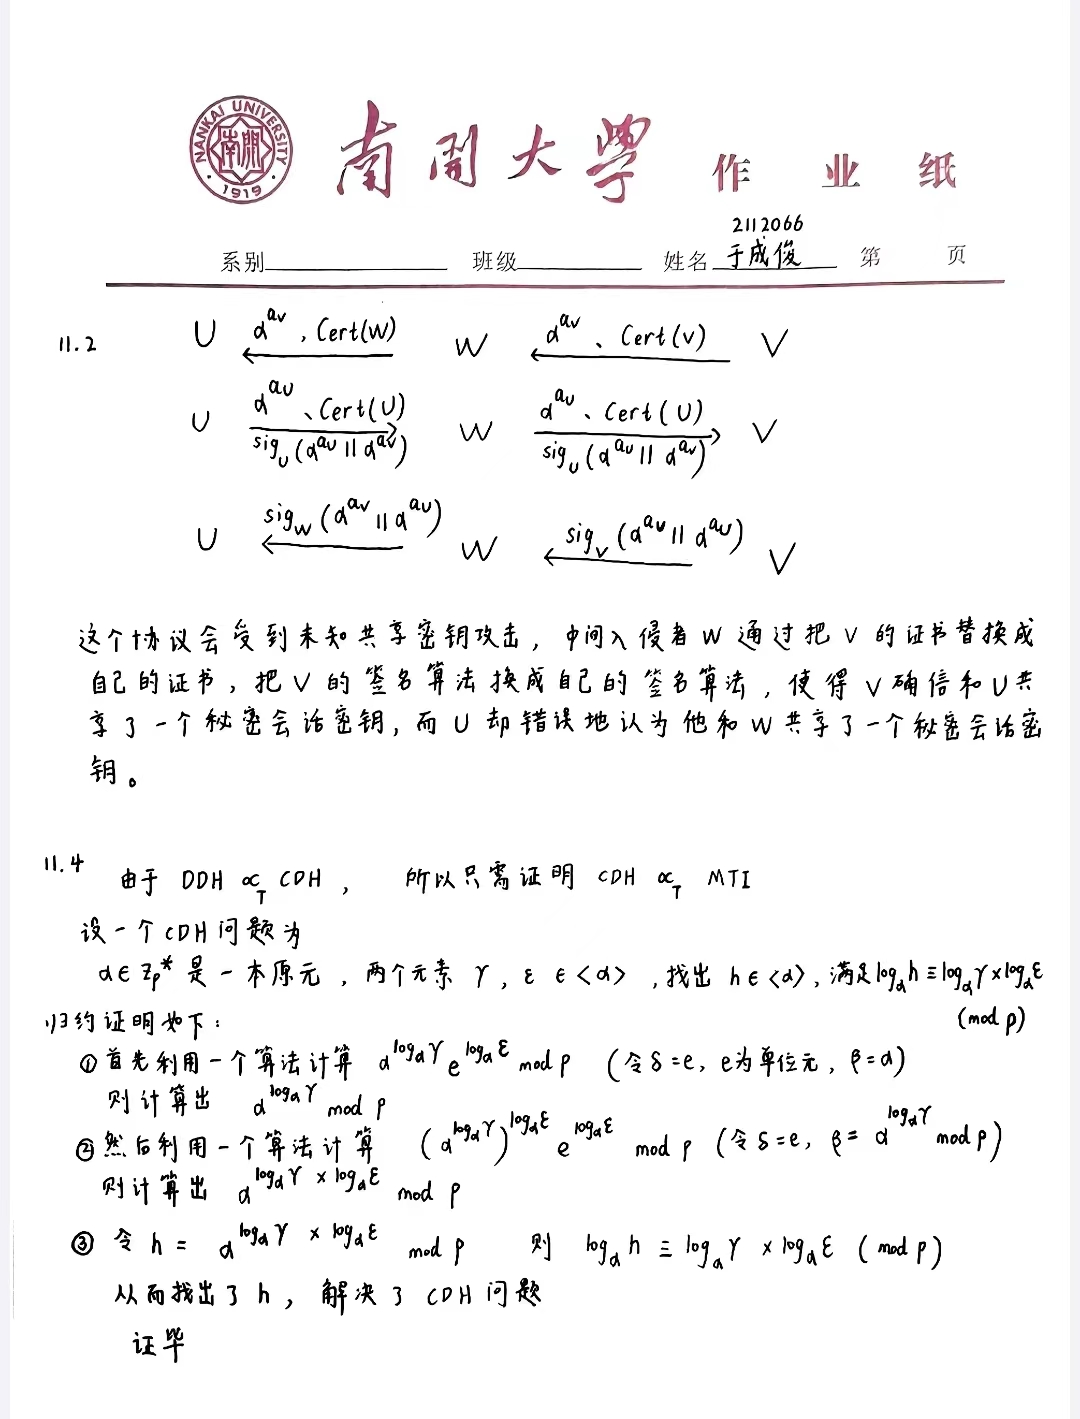 NANKAI UNIVERSITY
南開
1919
南開大學 作业纸
2112066
系别 班级 姓名 于成俊 第 页
11.2
U α^{a_V}, Cert(W) W α^{a_V}、Cert(V) V
U α^{a_U}、Cert(U) W α^{a_U}、Cert(U) V
sig_U(α^{a_U}||α^{a_V}) sig_U(α^{a_U}||α^{a_V})
U sig_W(α^{a_V}||α^{a_U}) W sig_V(α^{a_V}||α^{a_U}) V
这个协议会受到未知共享密钥攻击，中间入侵者W通过把V的证书替换成
自己的证书，把V的签名算法换成自己的签名算法，使得V确信和U共
享了一个秘密会话密钥，而U却错误地认为他和W共享了一个秘密会话密
钥。
11.4 由于 DDH ∝_T CDH， 所以只需证明 CDH ∝_T MTI
设一个CDH问题为
α∈Zp*是一本原元，两个元素γ，ε∈<α>，找出h∈<α>，满足log_α h≡log_α γ×log_α ε
(mod p)
归约证明如下：
①首先利用一个算法计算 α^{log_α γ} e^{log_α ε} mod p （令δ=e，e为单位元，β=α）
则计算出 α^{log_α γ} mod p
②然后利用一个算法计算 (α^{log_α γ})^{log_α ε} e^{log_α ε} mod p （令δ=e，β=α^{log_α γ} mod p）
则计算出 α^{log_α γ × log_α ε} mod p
③ 令h= α^{log_α γ × log_α ε} mod p 则 log_α h ≡ log_α γ × log_α ε (mod p)
从而找出了h，解决了CDH问题
证毕